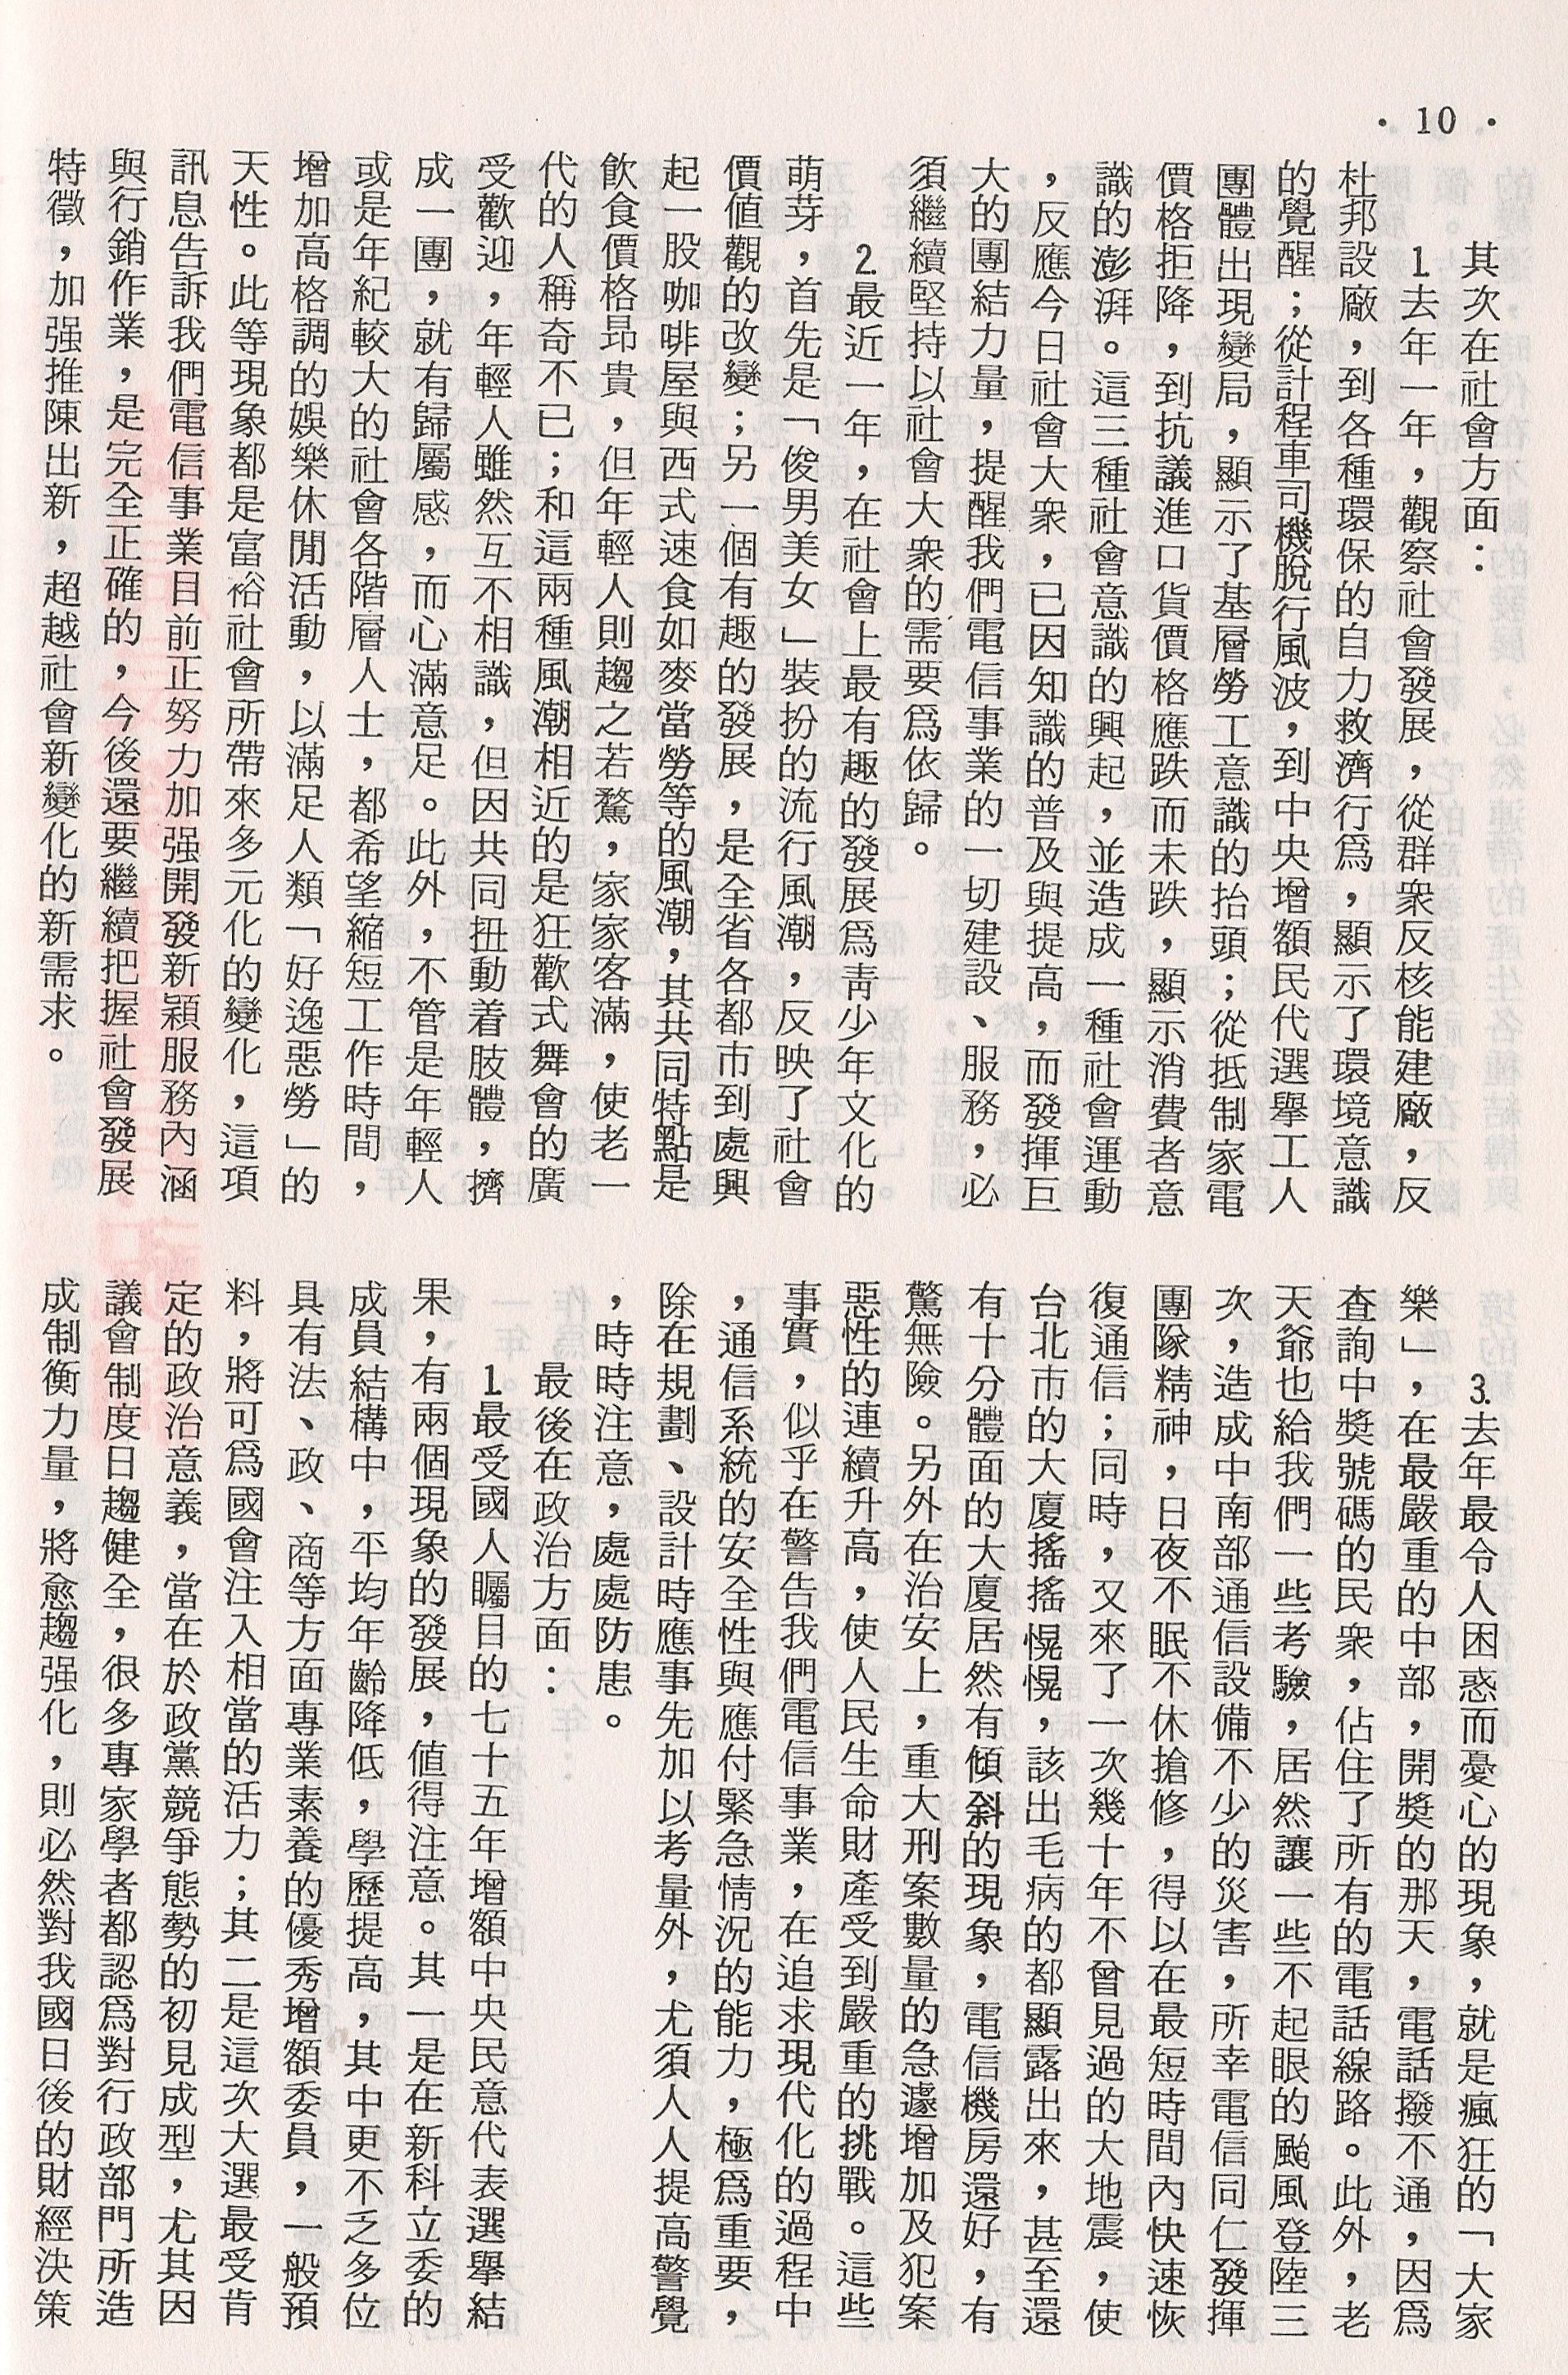 · 10 ·
其次在社會方面：
1.去年一年，觀察社會發展，從群衆反核能建廠，反
杜邦設廠，到各種環保的自力救濟行爲，顯示了環境意識
的覺醒；從計程車司機脫行風波，到中央增額民代選舉工人
團體出現變局，顯示了基層勞工意識的抬頭；從抵制家電
價格拒降，到抗議進口貨價格應跌而未跌，顯示消費者意
識的澎湃。這三種社會意識的興起，並造成一種社會運動
，反應今日社會大衆，已因知識的普及與提高，而發揮巨
大的團結力量，提醒我們電信事業的一切建設、服務，必
須繼續堅持以社會大衆的需要爲依歸。
2.最近一年，在社會上最有趣的發展爲靑少年文化的
萌芽，首先是「俊男美女」裝扮的流行風潮，反映了社會
價值觀的改變；另一個有趣的發展，是全省各都市到處興
起一股咖啡屋與西式速食如麥當勞等的風潮，其共同特點是
飲食價格昂貴，但年輕人則趨之若鶩，家家客滿，使老一
代的人稱奇不已；和這兩種風潮相近的是狂歡式舞會的廣
受歡迎，年輕人雖然互不相識，但因共同扭動着肢體，擠
成一團，就有歸屬感，而心滿意足。此外，不管是年輕人
或是年紀較大的社會各階層人士，都希望縮短工作時間，
增加高格調的娛樂休閒活動，以滿足人類「好逸惡勞」的
天性。此等現象都是富裕社會所帶來多元化的變化，這項
訊息告訴我們電信事業目前正努力加强開發新穎服務內涵
與行銷作業，是完全正確的，今後還要繼續把握社會發展
特徵，加强推陳出新，超越社會新變化的新需求。
3.去年最令人困惑而憂心的現象，就是瘋狂的「大家
樂」，在最嚴重的中部，開獎的那天，電話撥不通，因爲
查詢中獎號碼的民衆，佔住了所有的電話線路。此外，老
天爺也給我們一些考驗，居然讓一些不起眼的颱風登陸三
次，造成中南部通信設備不少的災害，所幸電信同仁發揮
團隊精神，日夜不眠不休搶修，得以在最短時間內快速恢
復通信；同時，又來了一次幾十年不曾見過的大地震，使
台北市的大廈搖搖愰愰，該出毛病的都顯露出來，甚至還
有十分體面的大廈居然有傾斜的現象，電信機房還好，有
驚無險。另外在治安上，重大刑案數量的急遽增加及犯案
惡性的連續升高，使人民生命財產受到嚴重的挑戰。這些
事實，似乎在警告我們電信事業，在追求現代化的過程中
，通信系統的安全性與應付緊急情況的能力，極爲重要，
除在規劃、設計時應事先加以考量外，尤須人人提高警覺
，時時注意，處處防患。
最後在政治方面：
1.最受國人矚目的七十五年增額中央民意代表選舉結
果，有兩個現象的發展，值得注意。其一是在新科立委的
成員結構中，平均年齡降低，學歷提高，其中更不乏多位
具有法、政、商等方面專業素養的優秀增額委員，一般預
料，將可爲國會注入相當的活力；其二是這次大選最受肯
定的政治意義，當在於政黨競爭態勢的初見成型，尤其因
議會制度日趨健全，很多專家學者都認爲對行政部門所造
成制衡力量，將愈趨强化，則必然對我國日後的財經決策